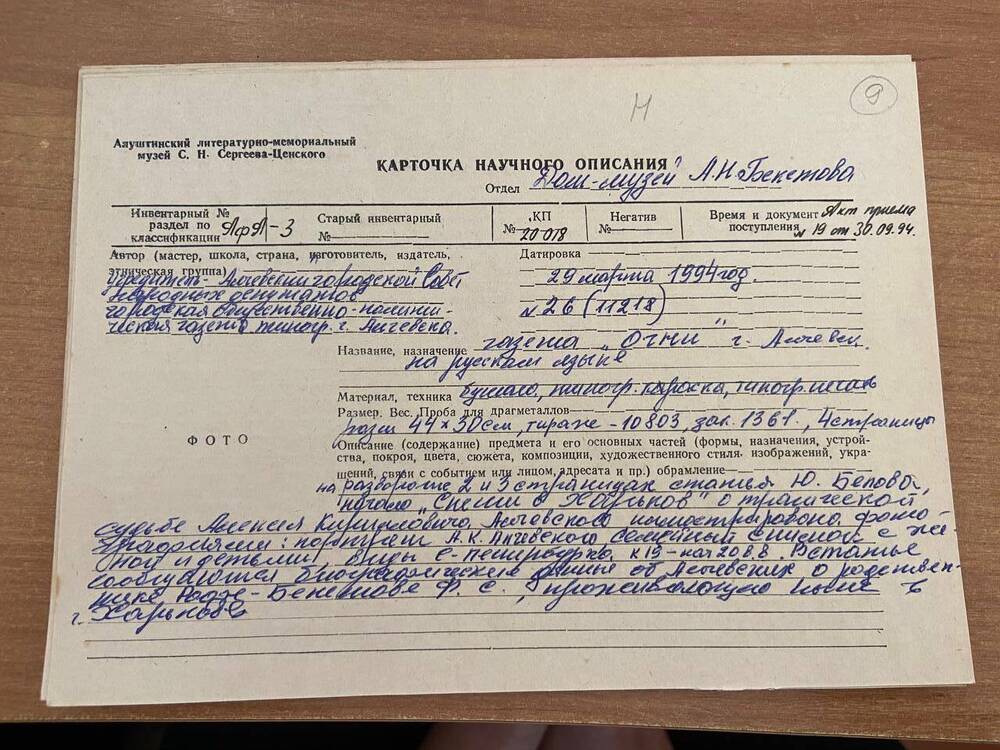 Н
9
Алуштинский литературно-мемориальный
музей С. Н. Сергеева-Ценского
КАРТОЧКА НАУЧНОГО ОПИСАНИЯ
Отдел Дом-музей А.Н Бекетова
Инвентарный №
раздел по
классификации АфА-3
Старый инвентарный
№
КП
№ 20 018
Негатив
№
Время и документ Акт приема
поступления № 19 от 30.09.94.
Автор (мастер, школа, страна, изготовитель, издатель,
этническая группа)
Учредитель- Алчевский городской Совет
народных депутатов
городская общественно-полити-
ческая газета типогр. г. Алчевска.
Датировка
29 марта 1994 год.
№ 26 (11218)
Название, назначение газета "Огни" г. Алчевск.
на русском языке
Материал, техника бумага, типогр. краска, типогр. печать
Размер. Вес. Проба для драгметаллов
разм 44×30см, тираж - 10803, зак. 1361., 4 страницы
ФОТО
Описание (содержание) предмета и его основных частей (формы, назначения, устрой-
ства, покроя, цвета, сюжета, композиции, художественного стиля изображений, укра-
щений, связи с событием или лицом, адресата и пр.) обрамление
на развороте 2 и 3 страницах статья Ю. Белова,
начало в Харьков" о трагической
судьбе Алексея Кирилловича Алчевского иллюстрирована фото-
графиями: портрет А.К. Алчевского семейный снимок с же-
ной и детьми, виды С-петербурга, к 19 - нач 20 в.в. В статье
сообщаются биографические данные об Алчевских о родствен-
нике Ф. С., проживающего ныне в
г. Харькове